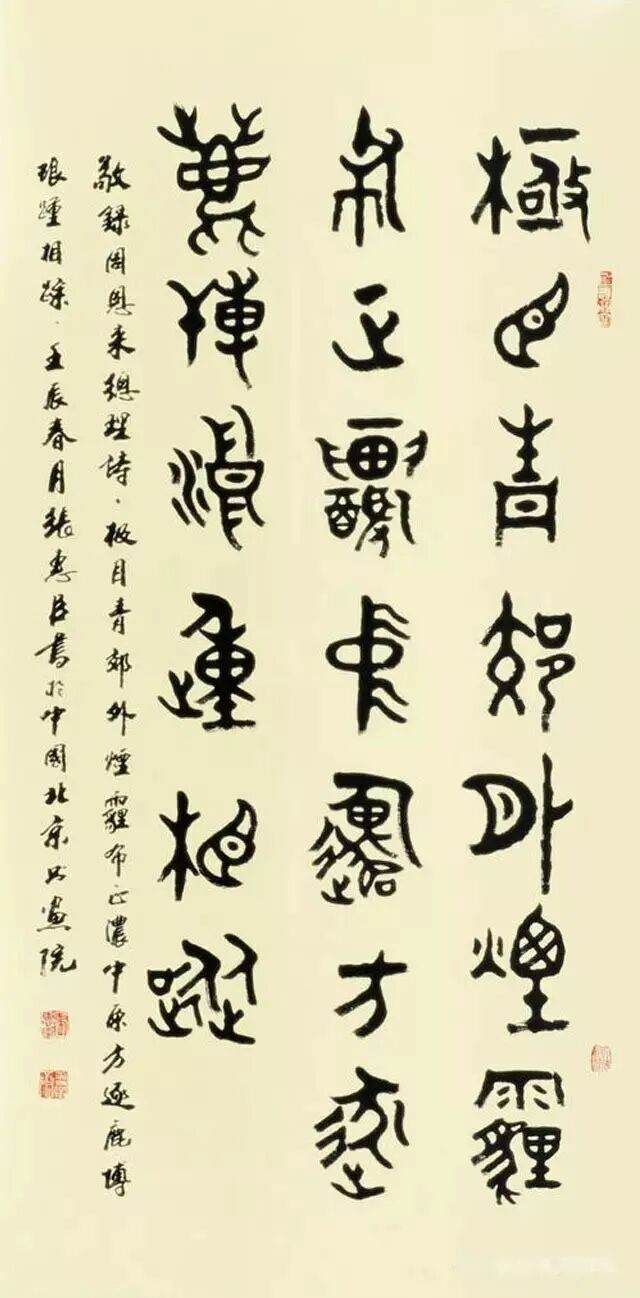 極目青郊外煙霾
布正濃中原方逐
鹿博浪踵相蹤
敬錄周恩来總理詩、极目青郊外煙霾布正濃中原方逐鹿博
浪踵相蹤·壬辰春月張惠臣書於中國北京书畫院